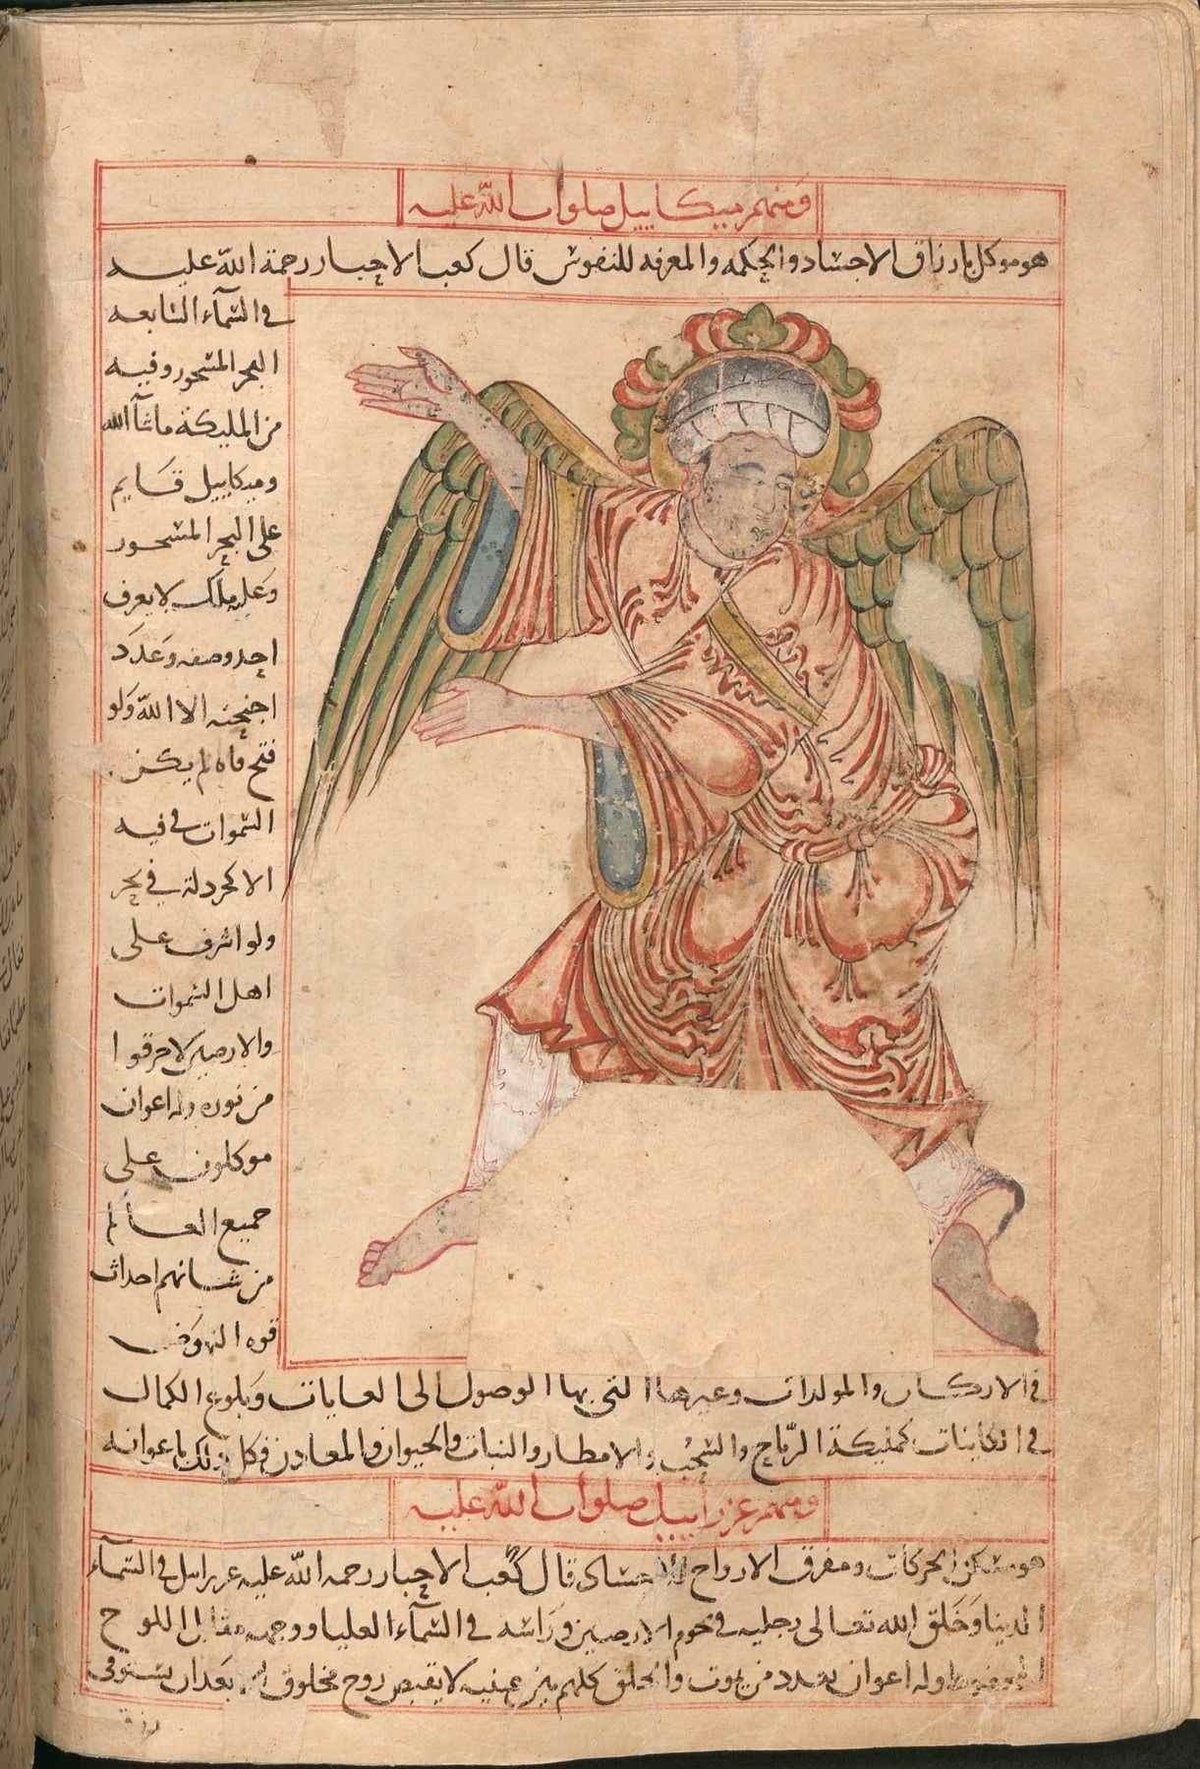 ومنهم ميكاييل صلوات الله عليه
هو موكل بارزاق الاجساد والحكمه والمعرفه للنفوس قال كعب الاحبار رحمة الله عليه
في السمآء السابعه
البحر المسجور وفيه
من المليكة ما شآ الله
وميكاييل قايم
على البحر المسجور
وعليه ملك لا يعرف
احد وصفه وعدد
اجنحته الا الله ولو
فتح فاه لم يكن
السموات في فيه
الا كخردلة في بحر
ولو اشرف على
اهل السموات
والارضين لاحرقوا
من نوره وله اعوان
موكلون على
جميع العالم
من شانهم احداث
قوه النهوض
في الاركان والمولدات وغيرها التي بها الوصول الى الغايات وبلوغ الكمال
في الكاينات كمليكة الرياح والسحب والامطار والنبات والحيوان والمعادن في كل ذلك باعوانه
ومنهم عزراييل صلوات الله عليه
هو مسكن الحركات ومفرق الارواح الاجساد قال كعب الاحبار رحمه الله عليه عزراييل في السمآء
الدنيا وخلق الله تعالى رجليه في تخوم الارضين وراسه في السمآء العليا ووجهه مقابل اللوح
المحفوظ وله اعوان بعدد من يموت والخلق كلهم بين عينيه لا يقبض روح مخلوق الا بعد ان يستوفى
رزقه